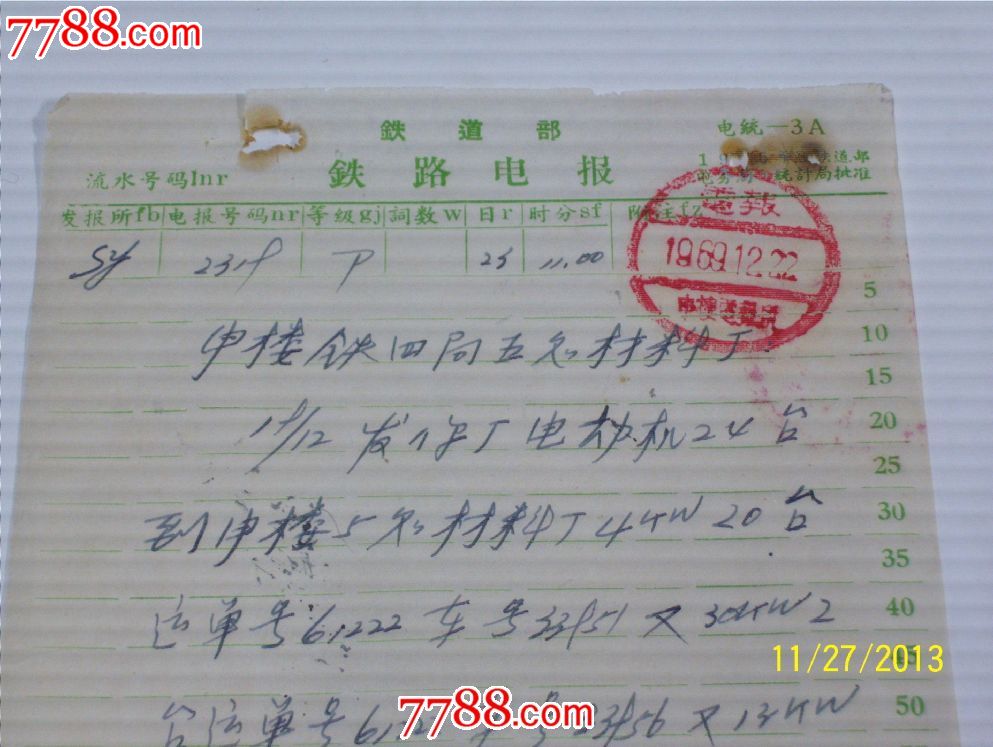 7788.com
鉄道部
电統—3A
流水号码lnr
鉄路电报
道部
統計局批准
发报所fb 电报号码nr 等级gj 詞数w 日r 时分sf 附注fz
Sy P 23 11.00
電報
1969.12.22
5
申楼铁四局五处材料厂
10
15
发你厂电动机24台
20
25
到申楼5处材料厂4KW20台
30
35
运单号61222车号又30KW2
40
45
11/27/2013
台运单号又13KW
50
7788.com